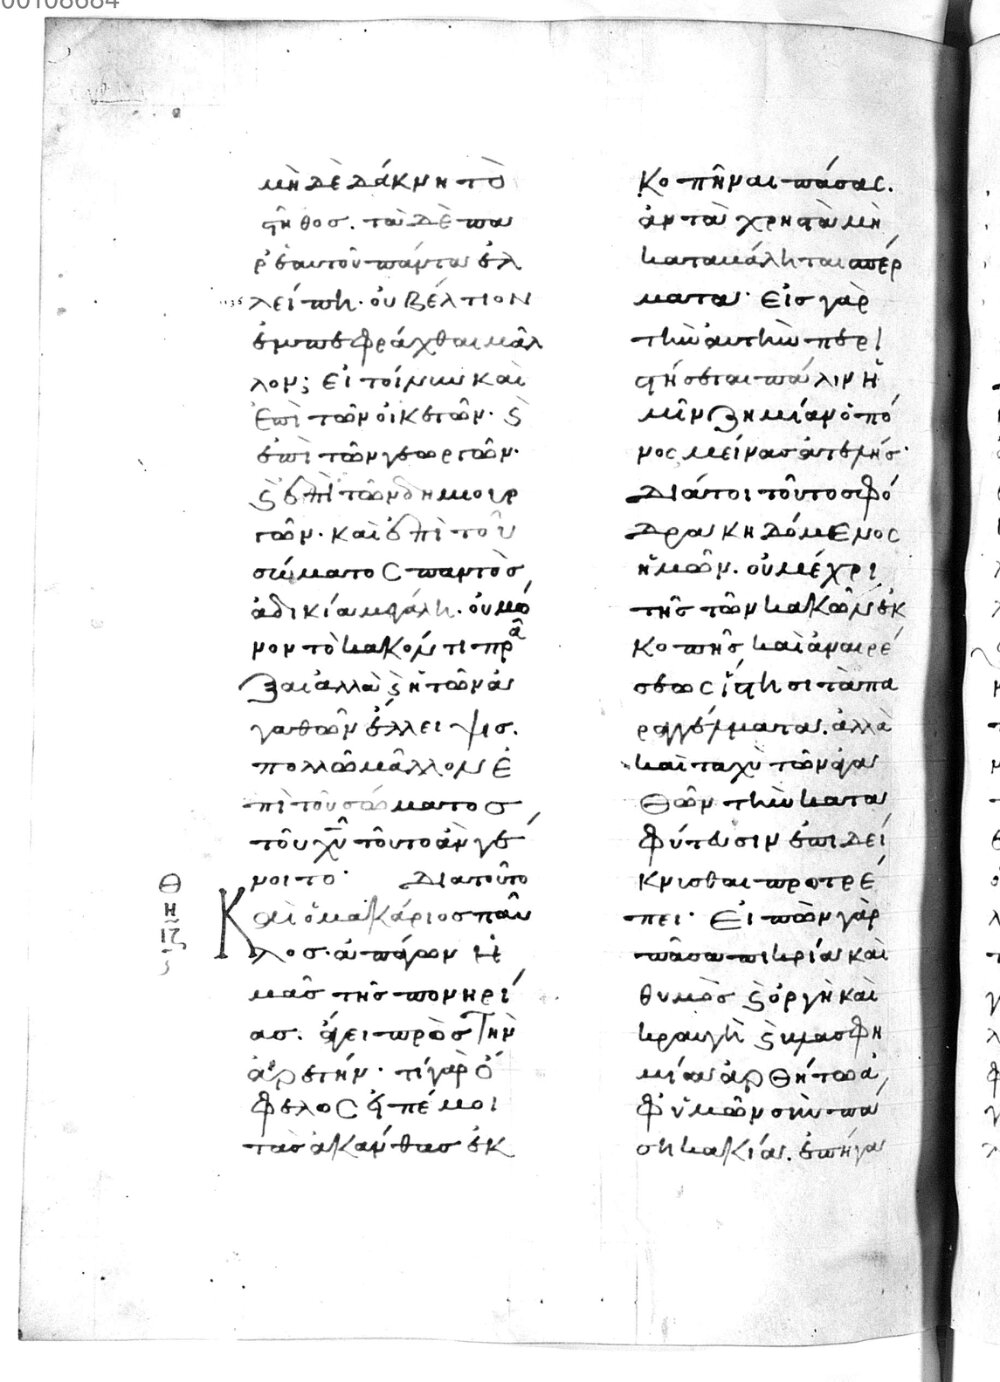 00108684
μὴ δὲ δάκνῃ τὸ
στῆθος. τὰ δὲ πα
ρ' ἑαυτοῦ πάντα ἐλ
λείπῃ. οὐ βέλτιον
ἐμπεφράχθαι μᾶλ
λον; εἰ τοίνυν καὶ
ἐπὶ τῶν οἰκετῶν. ϗ
ἐπὶ τῶν γεωργῶν.
ϗ ἐπὶ τῶν δημιουρ
γῶν. καὶ ἐπὶ τοῦ
σώματος παντὸς
ἀδικία μεγάλη. οὐ μό
νον τὸ κακόν τι πρᾶ
ξαι ἀλλὰ ϗ ἡ τῶν ἀ
γαθῶν ἔλλειψις.
πολλῶ μᾶλλον ἐ
πὶ τοῦ σώματος
τοῦ χῦ τοῦτο ἂν γέ
νοιτο. Διατοῦτο
Καὶ ὁ μακάριος παῦ
λος. ἀπάγων ἡ
μᾶς τῆς πονηρί
ας. ἄγει πρὸς τὴν
ἀρετήν. τί γὰρ ὄ
φελος εἰπέ μοι
τὰς ἀκάνθας ἐκ
Θ
Η
ιζ
κοπῆναι πάσας.
ἂν τὰ χρηστὰ μὴ
καταβάληται σπέρ
ματα. Εἰς γὰρ
τὴν αὐτὴν περι
στήσεται πάλιν ἡ
μῖν ζημίαν ὁ πό
νος μείνας ἀτελής.
Διάτοι τοῦτο σφό
δρα κηδόμενος
ἡμῶν. οὐ μέχρι
τῆς τῶν κακῶν ἐκ
κοπῆς καὶ ἀναιρέ
σεως ἵστησι τὰ πα
ραγγέλματα. ἀλλὰ
καὶ ταχὺ τῶν ἀγα
θῶν τὴν κατα
φύτευσιν ἐπιδεί
κνυσθαι προτρέ
πει. Εἰπὼν γὰρ
πᾶσα πικρία καὶ
θυμὸς ϗ ὀργὴ καὶ
κραυγὴ ϗ βλασφη
μία ἀρθήτω ἀ
φ' ὑμῶν σὺν πά
σῃ κακία. ἐπήγα